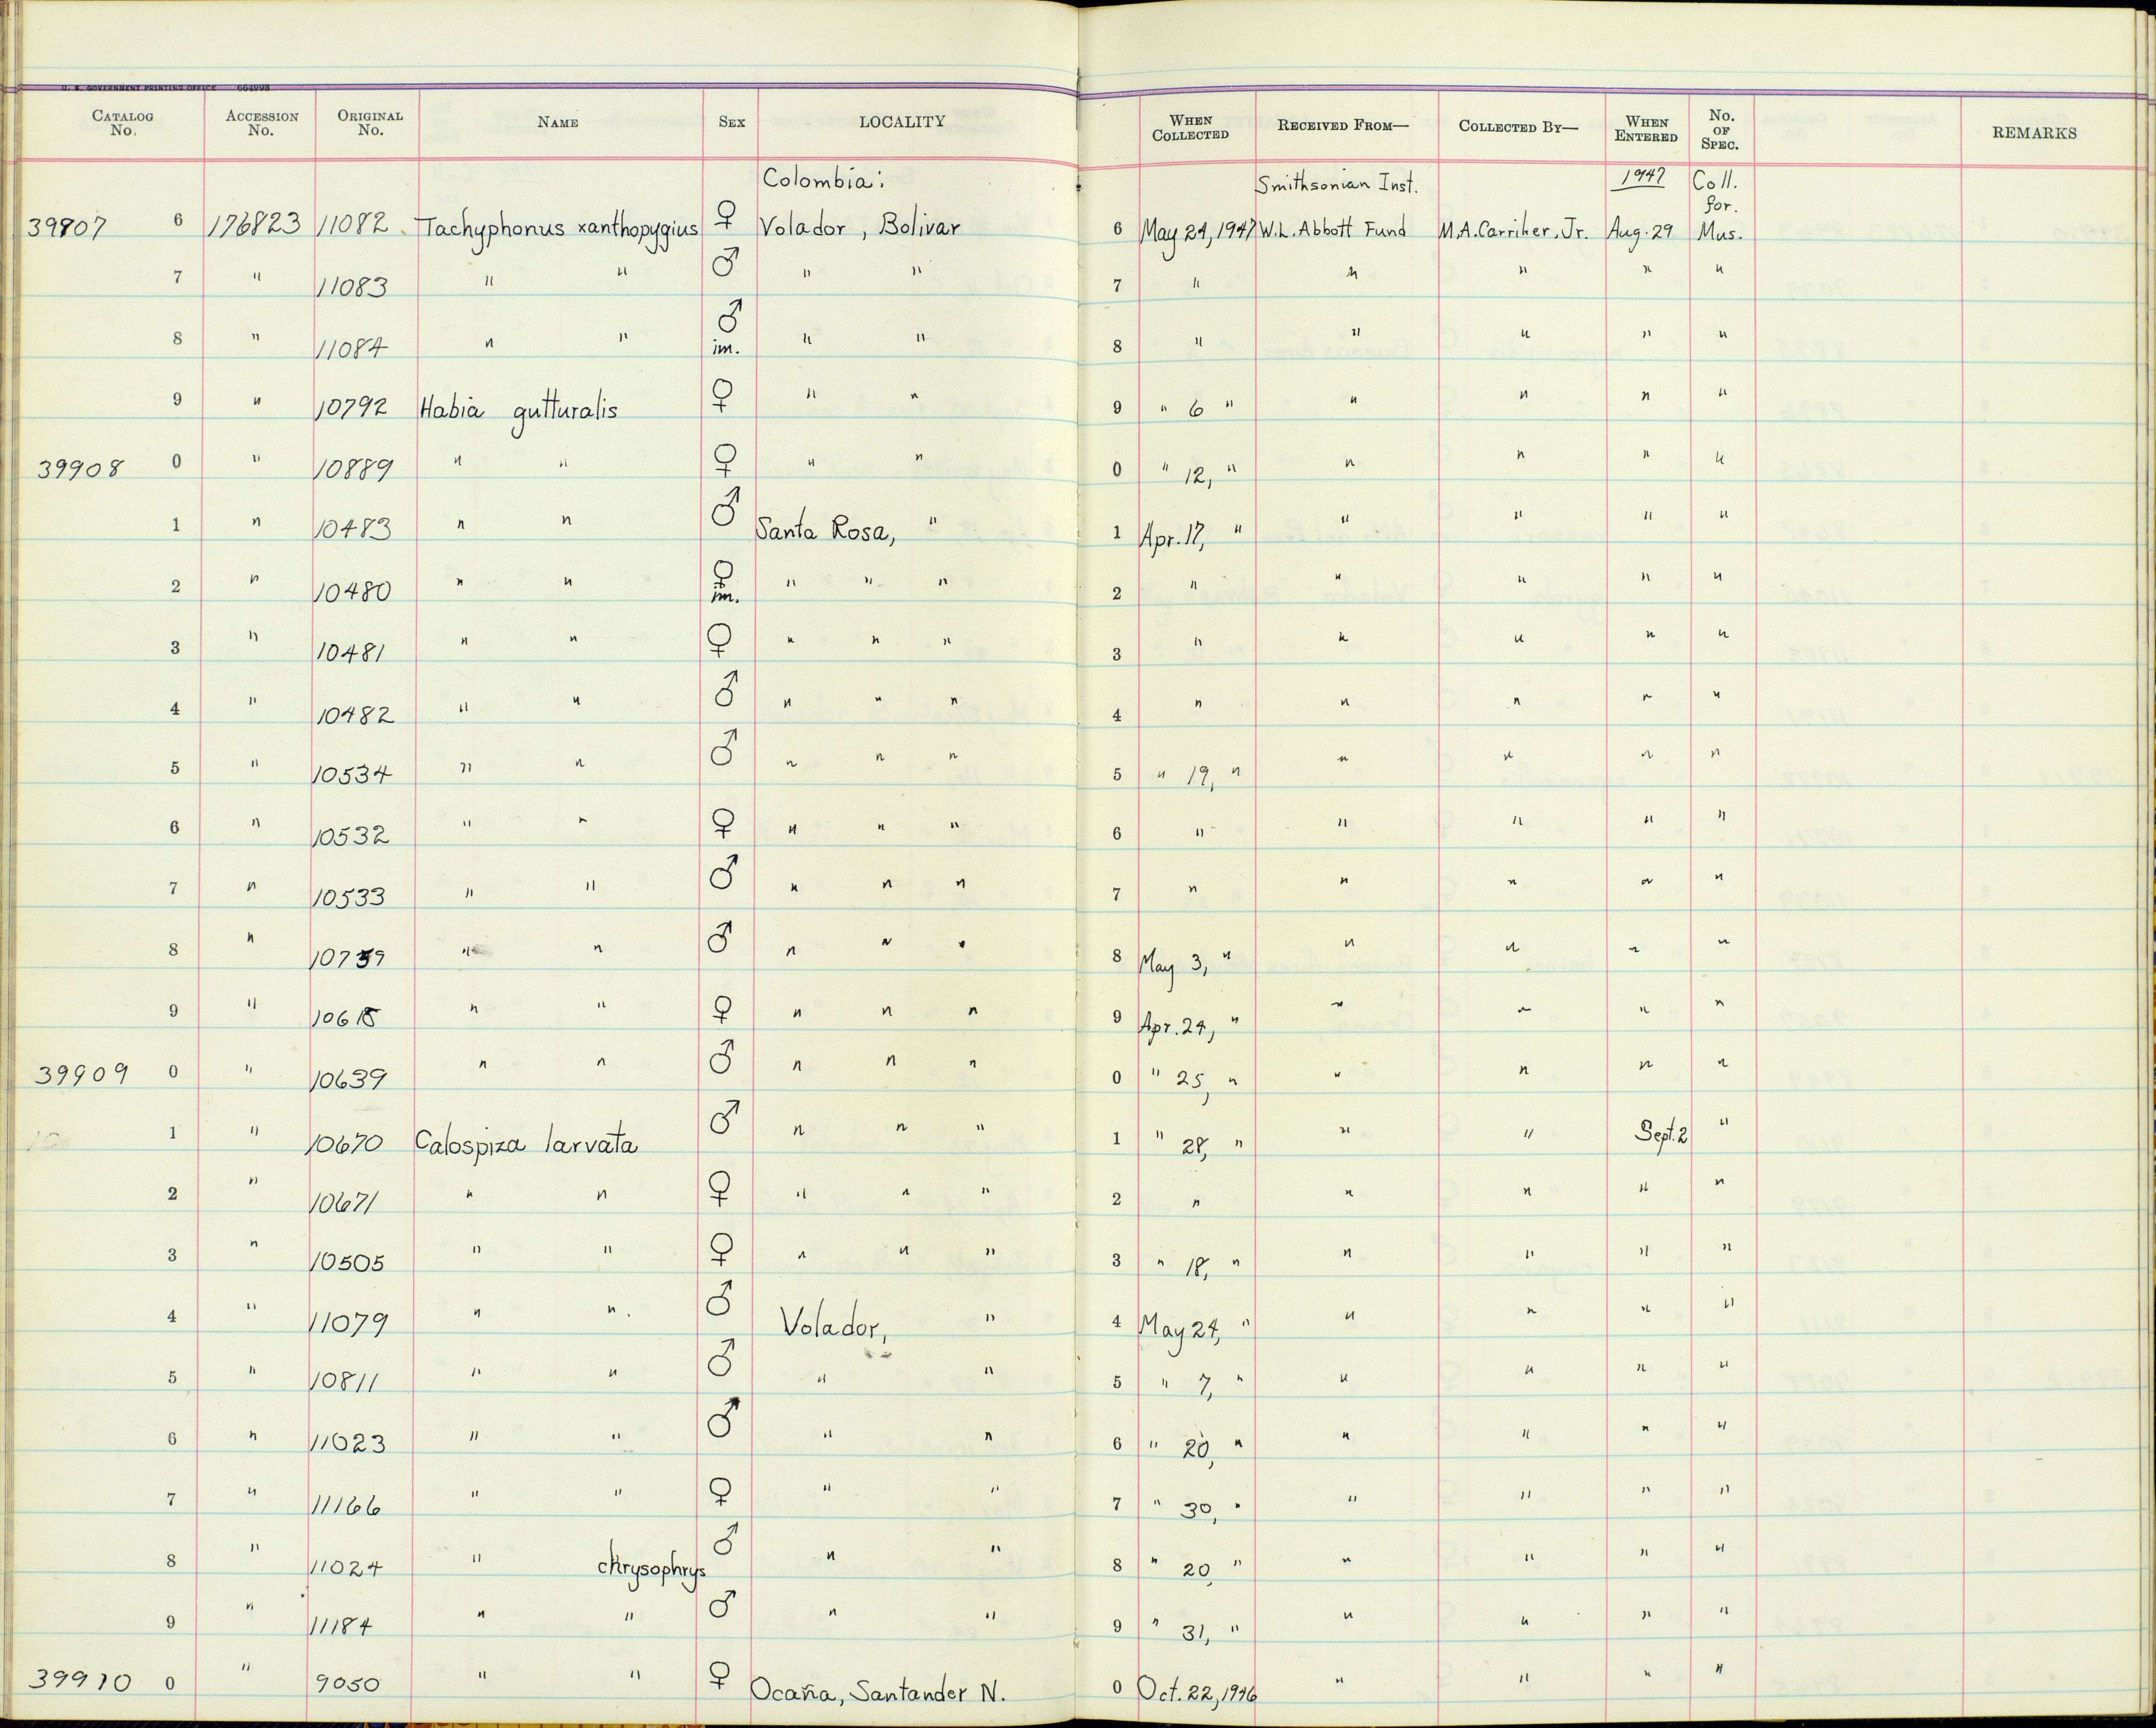 U. S. GOVERNMENT PRINTING OFFICE 664998
CATALOG No. ACCESSION No. ORIGINAL No. NAME SEX LOCALITY WHEN COLLECTED RECEIVED FROM— COLLECTED BY— WHEN ENTERED No. OF SPEC. REMARKS
Colombia: Smithsonian Inst. 1947 Coll. for.
39907 6 176823 11082 Tachyphonus xanthopygius ♀ Volador, Bolivar 6 May 24, 1947 W.L. Abbott Fund M.A. Carriker, Jr. Aug. 29 Mus.
7 " 11083 " " ♂ " " 7 " " " " "
8 " 11084 " " ♂ im. " " 8 " " " " "
9 " 10792 Habia gutturalis ♀ " " 9 " 6 " " " " "
39908 0 " 10889 " " ♀ " " 0 " 12, " " " " "
1 " 10483 " " ♂ Santa Rosa, " 1 Apr. 17, " " " " "
2 " 10480 " " ♀ im. " " " 2 " " " " "
3 " 10481 " " ♀ " " " 3 " " " " "
4 " 10482 " " ♂ " " " 4 " " " " "
5 " 10534 " " ♂ " " " 5 " 19, " " " " "
6 " 10532 " " ♀ " " " 6 " " " " "
7 " 10533 " " ♂ " " " 7 " " " " "
8 " 10759 " " ♂ " " " 8 May 3, " " " " "
9 " 10618 " " ♀ " " " 9 Apr. 24, " " " " "
39909 0 " 10639 " " ♂ " " " 0 " 25, " " " " "
1 " 10670 Calospiza larvata ♂ " " " 1 " 28, " " " Sept. 2 "
2 " 10671 " " ♀ " " " 2 " " " " "
3 " 10505 " " ♀ " " " 3 " 18, " " " " "
4 " 11079 " " ♂ Volador, " 4 May 24, " " " " "
5 " 10811 " " ♂ " " 5 " 7, " " " " "
6 " 11023 " " ♂ " " 6 " 20, " " " " "
7 " 11166 " " ♀ " " 7 " 30, " " " " "
8 " 11024 " chrysophrys ♂ " " 8 " 20, " " " " "
9 " 11184 " " ♂ " " 9 " 31, " " " " "
39910 0 " 9050 " " ♀ Ocaña, Santander N. 0 Oct. 22, 1946 " " " "